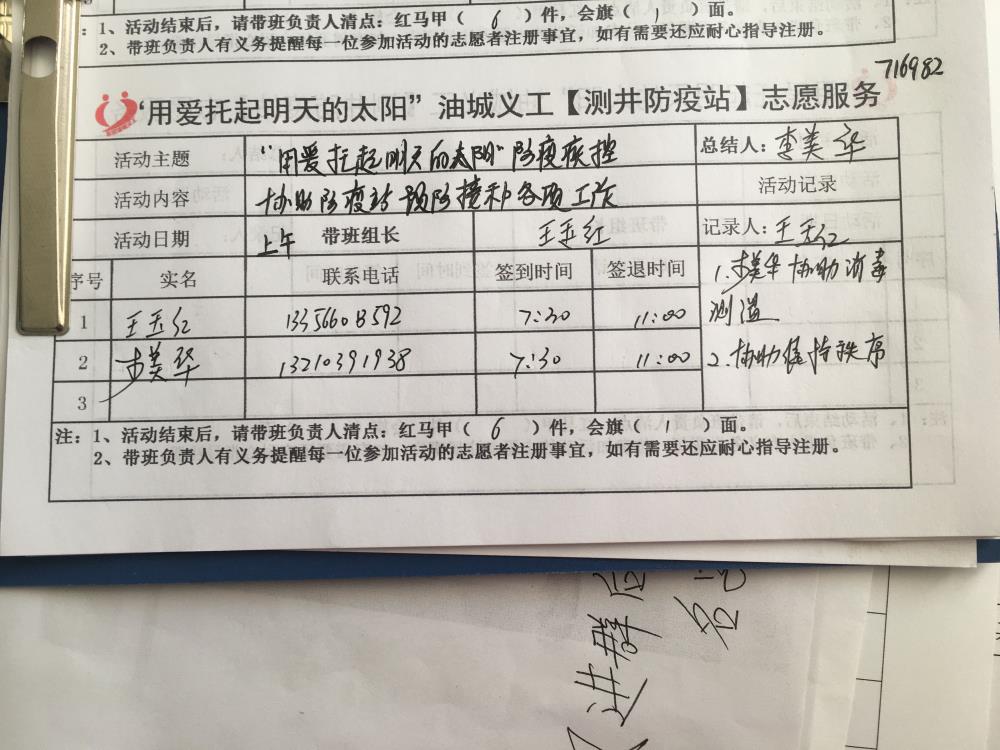 ：1、活动结束后，请带班负责人清点：红马甲（ 6 ）件，会旗（ 1 ）面。
2、带班负责人有义务提醒每一位参加活动的志愿者注册事宜，如有需要还应耐心指导注册。
716982
“用爱托起明天的太阳”油城义工【测井防疫站】志愿服务
活动主题 “用爱托起明天的太阳”防疫疾控 总结人：李美华
活动内容 协助防疫站预防接种各项工作 活动记录
活动日期 上午 带班组长 王玉红 记录人：王玉红
序号 实名 联系电话 签到时间 签退时间
1 王玉红 13356608592 7:30 11:00
2 李美华 13210391938 7:30 11:00
3
1.李美华协助消毒
测温
2.协助维持秩序
注：1、活动结束后，请带班负责人清点：红马甲（ 6 ）件，会旗（ 1 ）面。
2、带班负责人有义务提醒每一位参加活动的志愿者注册事宜，如有需要还应耐心指导注册。
进群后